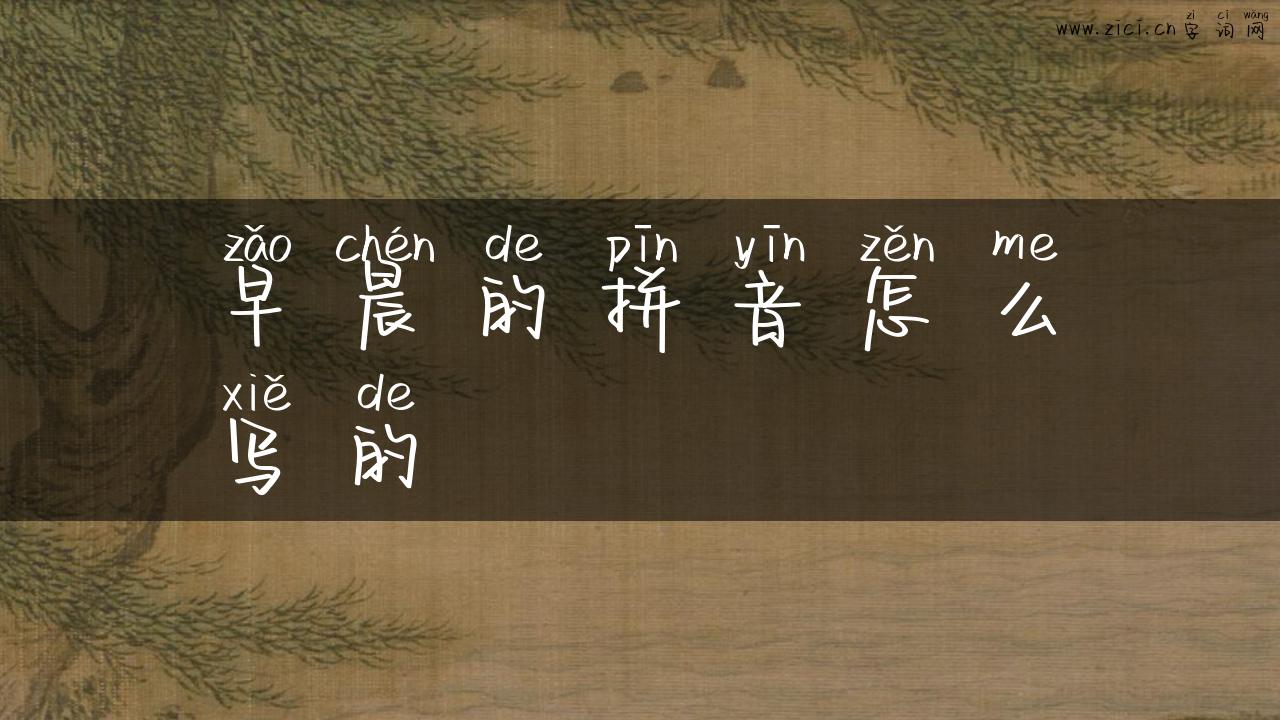 zì cí wǎng
www.zici.cn 字词网
zǎo chén de pīn yīn zěn me
早晨的拼音怎么
xiě de
写的